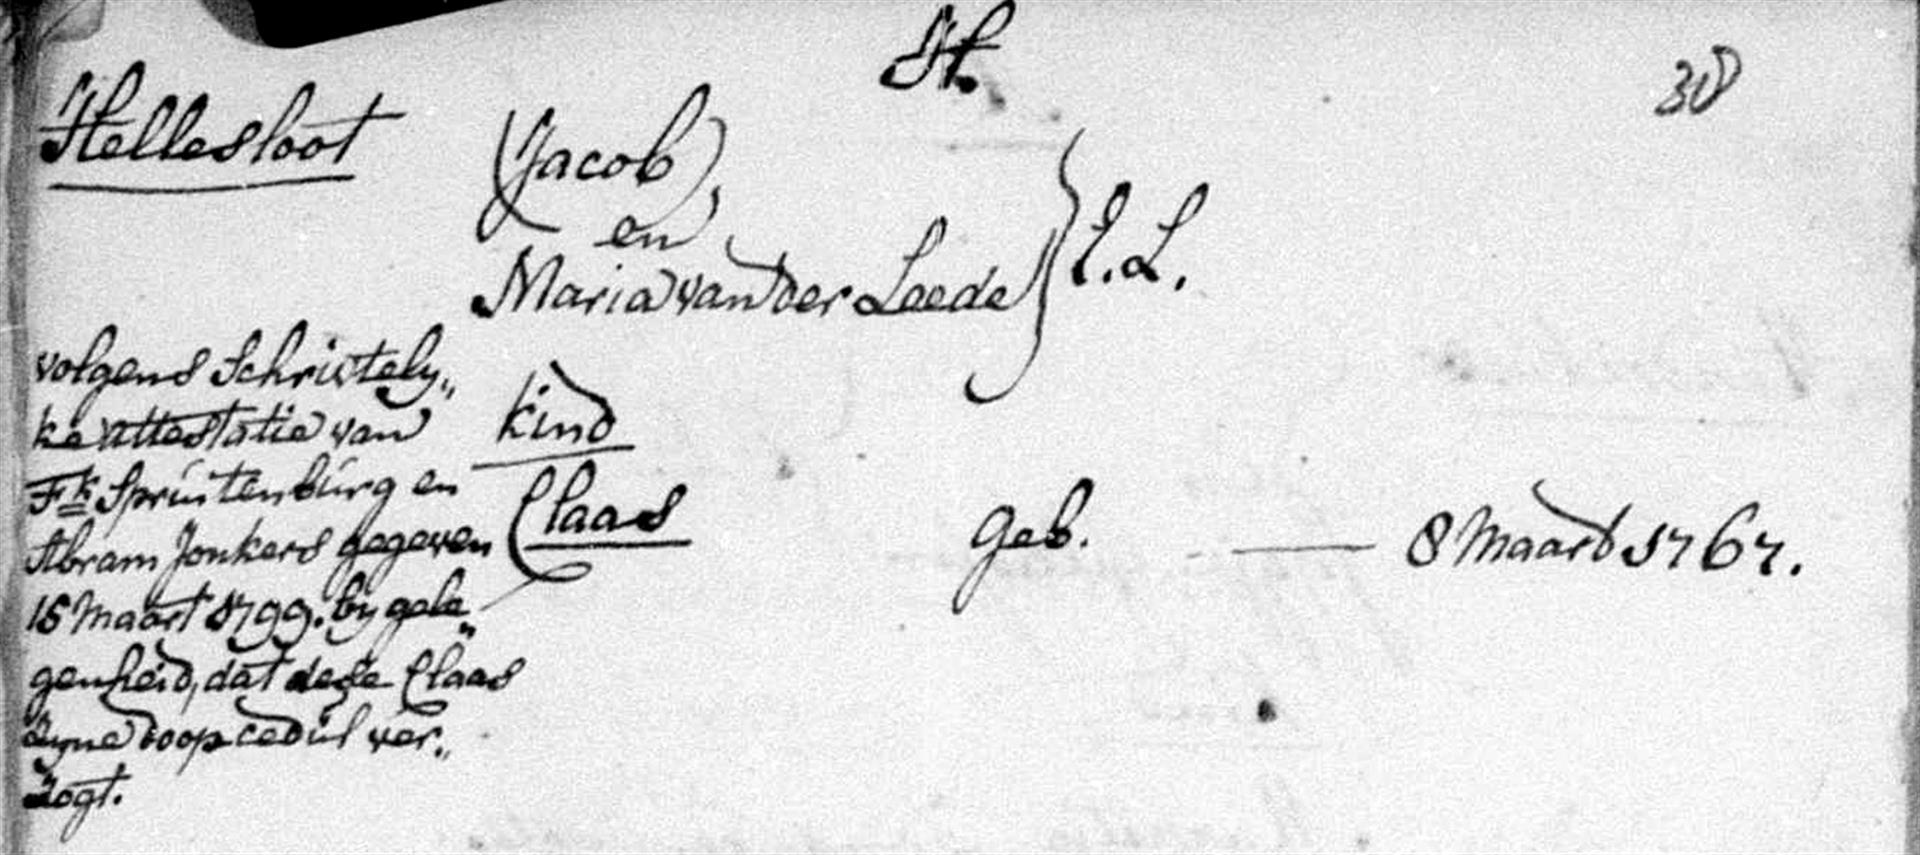 H.
38
Hellesloot
Jacob
en
Maria van der Leede } E.L.
volgens Schriftely„
ke attestatie van
Fk Spruitenburg en
Abram Jonkers gegeven
15 Maart 1799. by gele„
genheid, dat deze Claas
Zyne doopcedul ver„
zogt.
kind
Claas geb. — 8 Maart 1767.